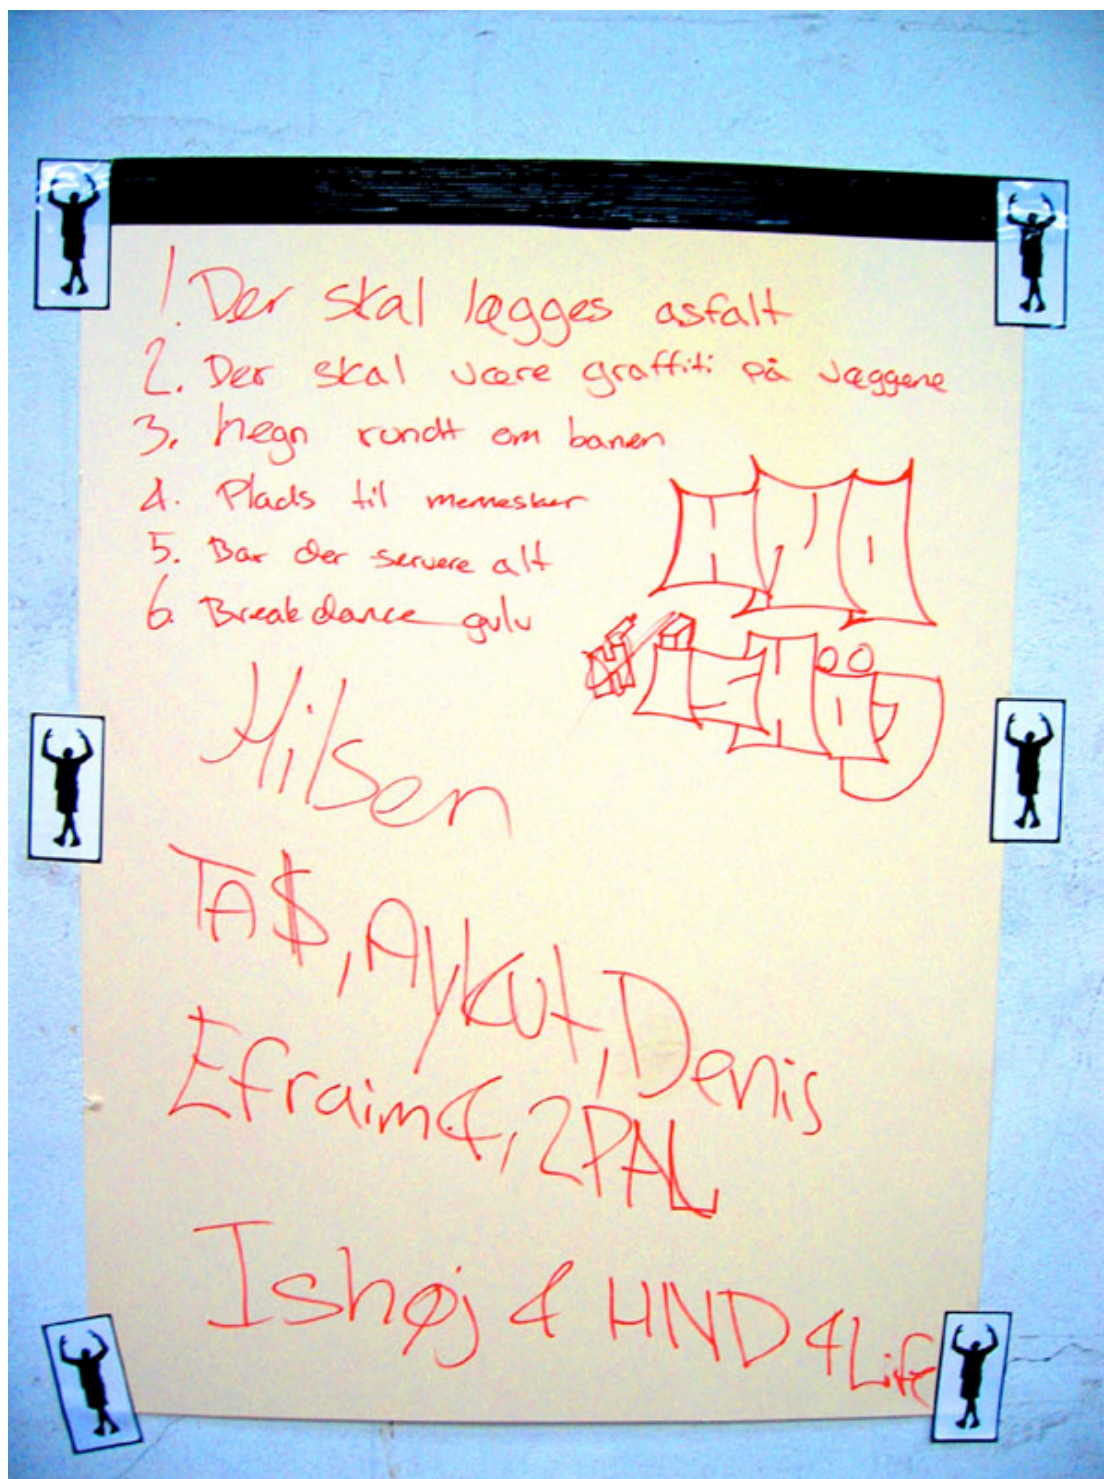 1. Der skal lægges asfalt
2. Der skal være graffiti på væggene
3. hegn rundt om banen
4. Plads til mennesker
5. Bar der servere alt
6. Breakdance gulv
HND
ISHØJ
Hilsen
TA$, Aykut, Denis
Efraim &, 2PAL
Ishøj & HND 4 Life